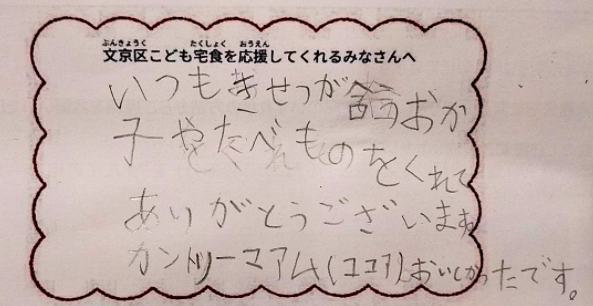 ぶんきょうく たくしょく おうえん
文京区こども宅食を応援してくれるみなさんへ
いつもきせつが おか
子やたべものをくれて
ありがとうございます
カントリーマアム(ココア)おいしかったです。